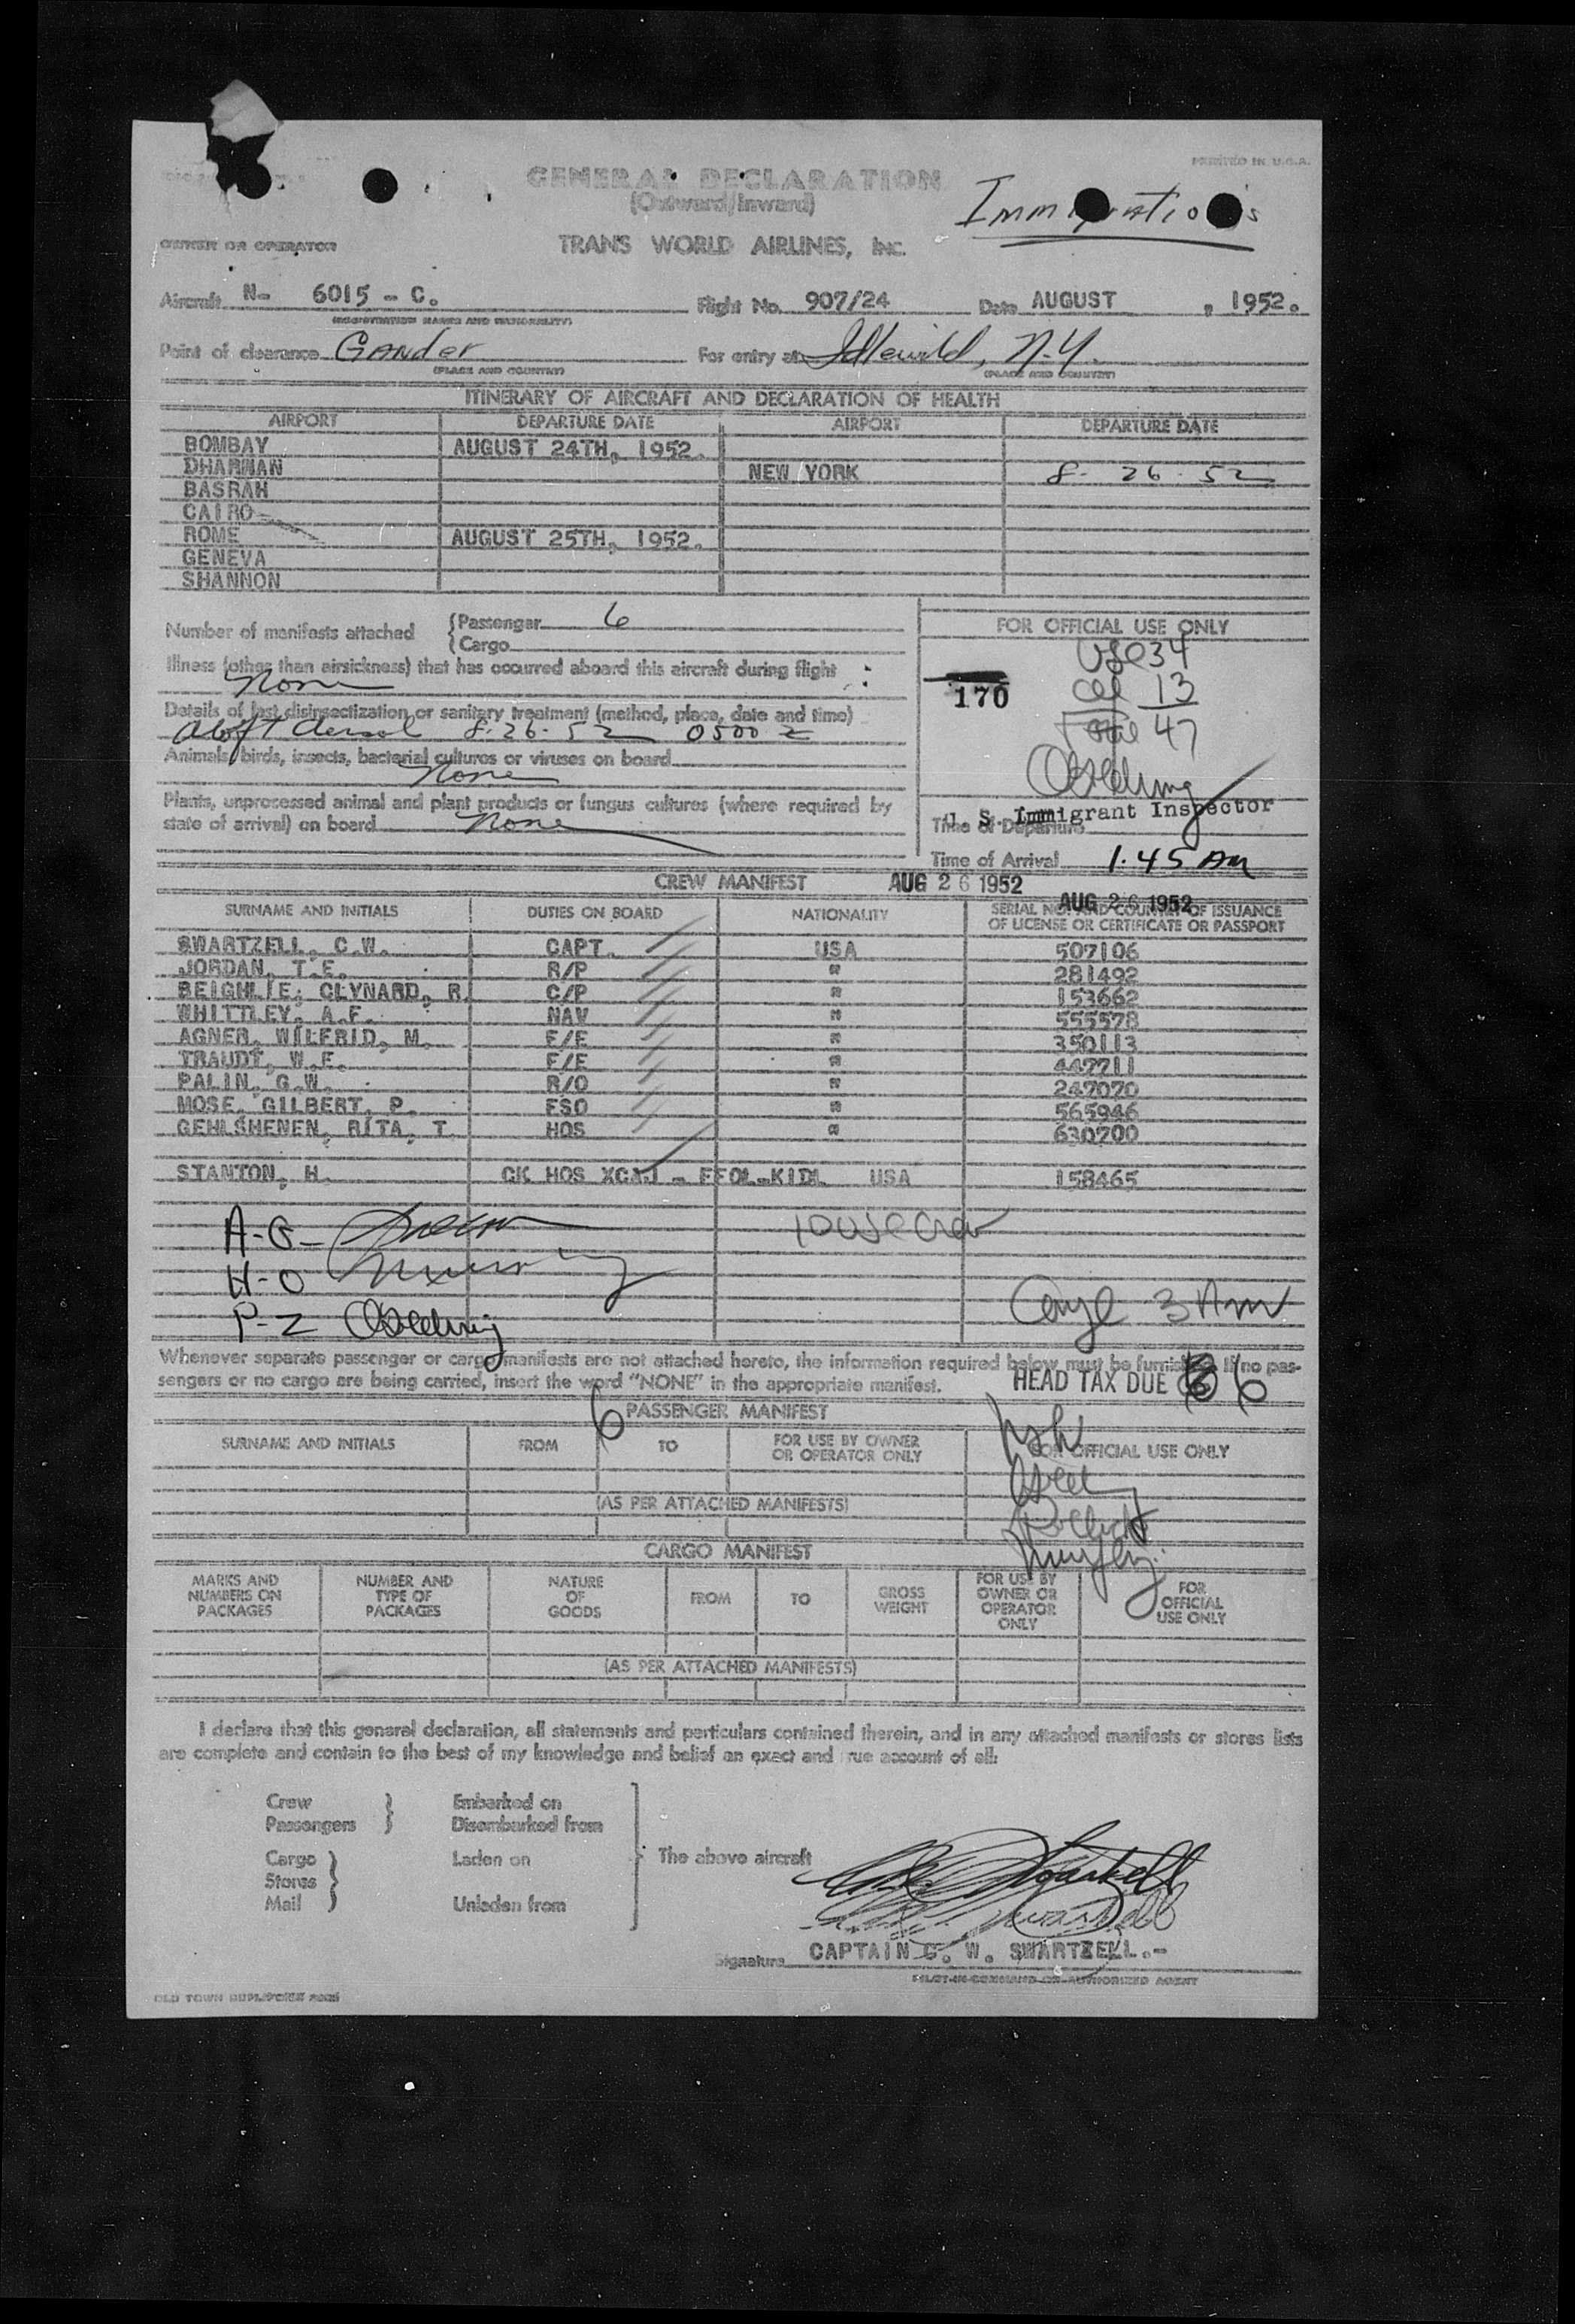 PRINTED IN U.S.A.
GENERAL DECLARATION
(Outward/Inward)
Immigration's
OWNER OR OPERATOR TRANS WORLD AIRLINES, INC.
Aircraft N- 6015 - C. Flight No. 907/24 Date AUGUST , 1952.
(REGISTRATION MARKS AND NATIONALITY)
Point of clearance Gander For entry at Idlewild, N.Y.
(PLACE AND COUNTRY) (PLACE AND COUNTRY)
ITINERARY OF AIRCRAFT AND DECLARATION OF HEALTH
AIRPORT DEPARTURE DATE AIRPORT DEPARTURE DATE
BOMBAY AUGUST 24TH, 1952.
DHARNAN NEW YORK 8-26-52
BASRAH
CAIRO
ROME AUGUST 25TH, 1952.
GENEVA
SHANNON
Number of manifests attached {Passenger 6
{Cargo
Illness (other than airsickness) that has occurred aboard this aircraft during flight :
None
Details of last disinsectization or sanitary treatment (method, place, date and time)
Aloft Aerosol 8-26-52 0500 Z
Animals, birds, insects, bacterial cultures or viruses on board
None
Plants, unprocessed animal and plant products or fungus cultures (where required by
state of arrival) on board None
FOR OFFICIAL USE ONLY
USC 34
170
13
Total 47
U. S. Immigrant Inspector
Time of Departure
Time of Arrival 1.45 AM
CREW MANIFEST AUG 26 1952
AUG 26 1952
SURNAME AND INITIALS DUTIES ON BOARD NATIONALITY SERIAL NO. AND COUNTRY OF ISSUANCE
OF LICENSE OR CERTIFICATE OR PASSPORT
SWARTZELL, C.W. CAPT. USA 507106
JORDAN, T.E. R/P " 281492
BEIGHLIE, CLYNARD, R. C/P " 153662
WHITTLEY, A.F. NAV " 555578
AGNER, WILFRID, M. F/E " 350113
TRAUDT, W.E. F/E " 447711
PALIN, G.W. R/O " 247070
MOSE, GILBERT, P. FSO " 565946
GEHLSHENEN, RITA, T. HOS " 630700
STANTON, H. CK HOS USA 158465
A-G-
H-O
P-Z
10 USC Crew
3 AM
Whenever separate passenger or cargo manifests are not attached hereto, the information required below must be furnished. If no pas-
sengers or no cargo are being carried, insert the word "NONE" in the appropriate manifest.
HEAD TAX DUE
6 PASSENGER MANIFEST
SURNAME AND INITIALS FROM TO FOR USE BY OWNER
OR OPERATOR ONLY FOR OFFICIAL USE ONLY
(AS PER ATTACHED MANIFESTS)
CARGO MANIFEST
MARKS AND
NUMBERS ON
PACKAGES NUMBER AND
TYPE OF
PACKAGES NATURE
OF
GOODS FROM TO GROSS
WEIGHT FOR USE BY
OWNER OR
OPERATOR
ONLY FOR
OFFICIAL
USE ONLY
(AS PER ATTACHED MANIFESTS)
I declare that this general declaration, all statements and particulars contained therein, and in any attached manifests or stores lists
are complete and contain to the best of my knowledge and belief an exact and true account of all:
Crew } Embarked on
Passengers } Disembarked from
Cargo } Laden on The above aircraft
Stores }
Mail } Unladen from
Signature CAPTAIN C. W. SWARTZELL.-
PILOT-IN-COMMAND OR AUTHORIZED AGENT